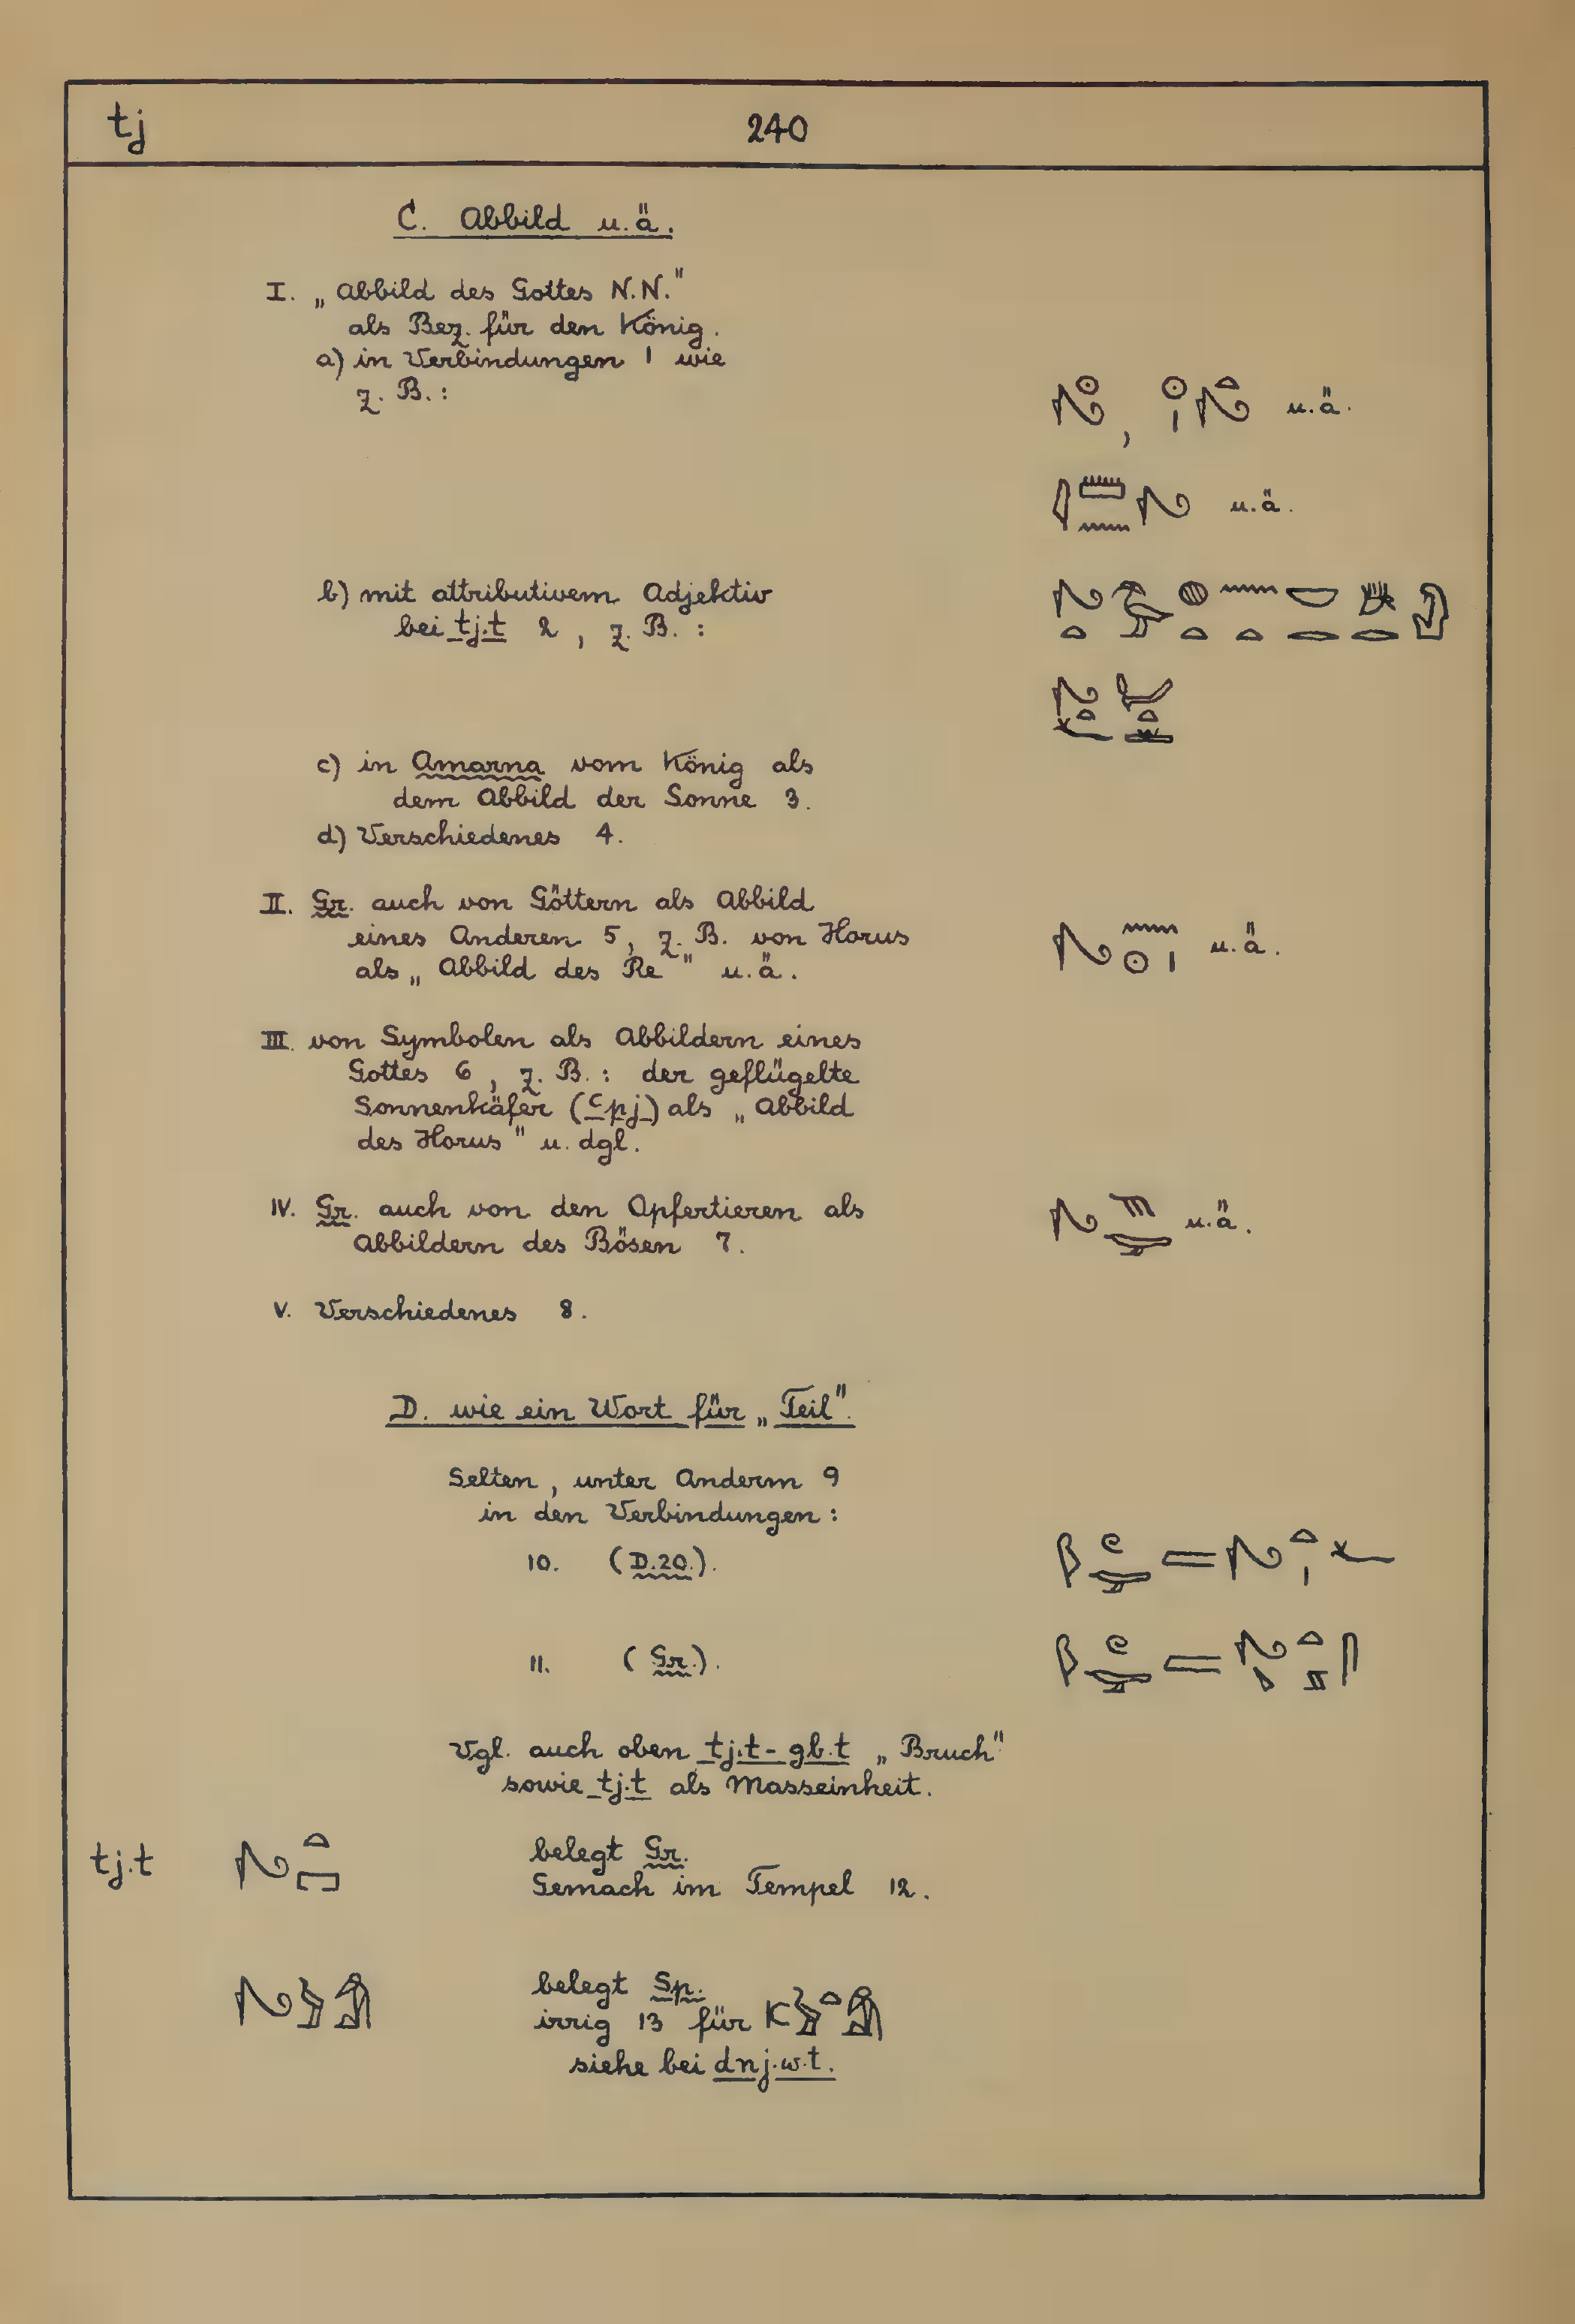 tj 240
C. Abbild u.ä.
I. „Abbild des Gottes N.N."
als Bez. für den König.
a) in Verbindungen 1 wie
z. B.:
, u.ä.
u.ä.
b) mit attributivem Adjektiv
bei tj.t 2, z. B.:
c) in Amarna vom König als
dem Abbild der Sonne 3.
d) Verschiedenes 4.
II. Gr. auch von Göttern als Abbild
eines Anderen 5, z. B. von Horus
als „Abbild des Re" u.ä. u.ä.
III. von Symbolen als Abbildern eines
Gottes 6, z. B.: der geflügelte
Sonnenkäfer (ꜥpj) als „Abbild
des Horus" u. dgl.
IV. Gr. auch von den Opfertieren als u.ä.
Abbildern des Bösen 7.
V. Verschiedenes 8.
D. wie ein Wort für „Teil".
Selten, unter Anderm 9
in den Verbindungen:
10. (D.20.).
11. (Gr.).
Vgl. auch oben tj.t-gb.t „Bruch"
sowie tj.t als Masseinheit.
tj.t belegt Gr.
Gemach im Tempel 12.
belegt Sp.
irrig 13 für
siehe bei dnj.w.t.